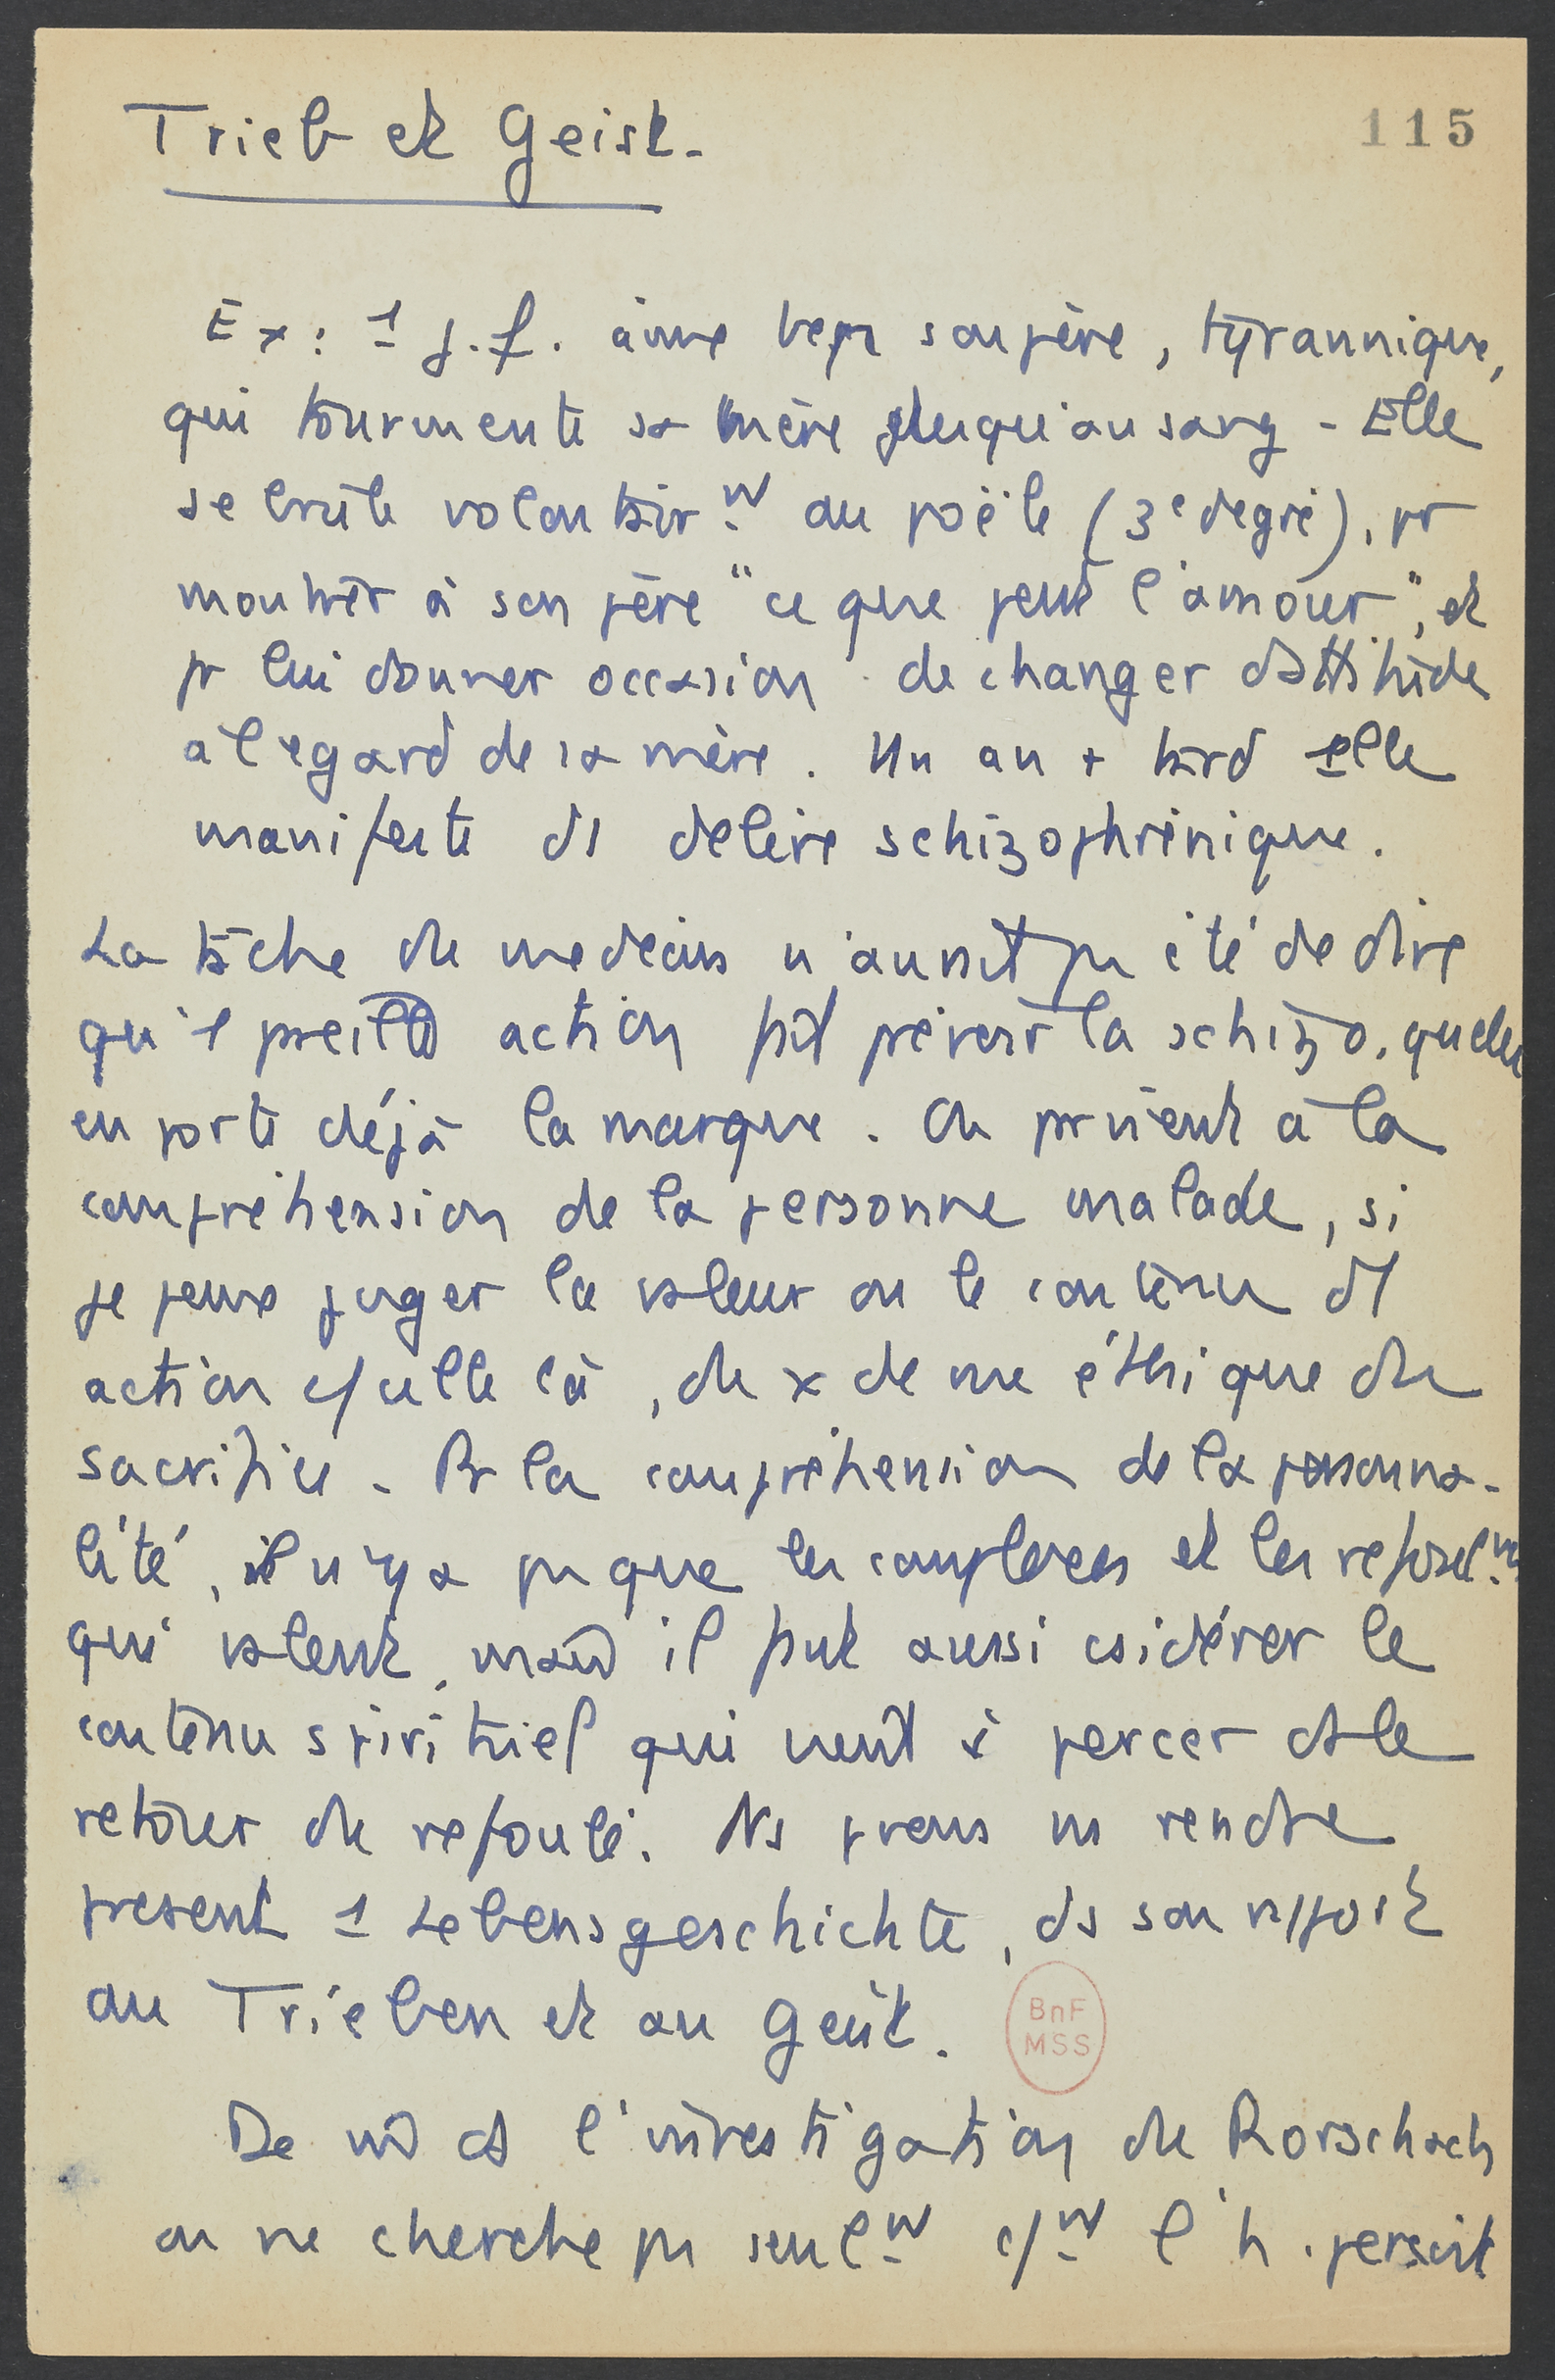 Trieb et Geist.
115
Ex : 1 j.f. aime bcp son père, tyrannique,
qui tourmente sa mère jusqu'au sang - Elle
se brûle volontairnt au poële (3e degré), pr
montrer à son père "ce que peut l'amour", et
pr lui donner occasion de changer d'attitude
à l'égard de sa mère. Un an + tard elle
manifeste ds délire schizophrénique.
La tâche du médecin n'aurait pu été de dire
qu'1 pareille action fait prévoir la schizo. qu'elle
en porte déjà la marque. On parvient à la
compréhension de la personne malade, si
je peux juger la valeur ou le contenu d'1
action c/ celle là, du x de vue éthique du
sacrifice. Pr la compréhension de la personna-
lité, il n'y a pas que les complexes et les refoulnts
qui valent, mais il faut aussi csidérer le
contenu spirituel qui vient à percer ds le
retour du refoulé. Ns pvons ns rendre
présent 1 Lebensgeschichte, ds son rapport
au Trieben et au Geist.
BnF
MSS
De m ds l'investigation du Rorschach
on ne cherche pas seulnt c/nt l'h. perçoit